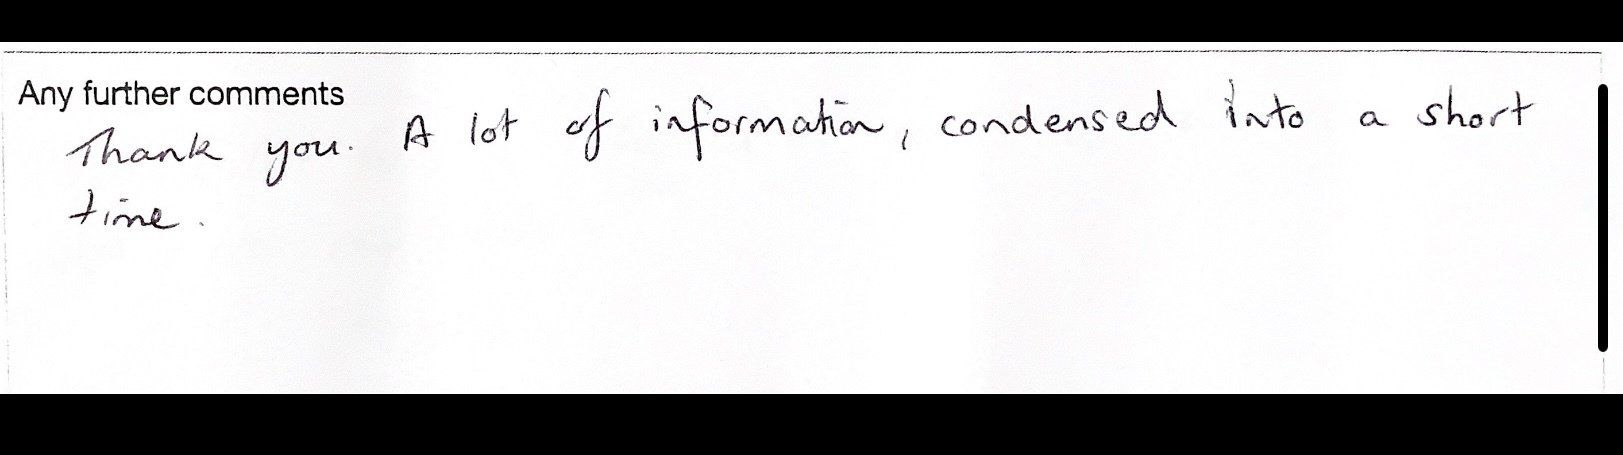 Any further comments
Thank you. A lot of information, condensed into a short
time.